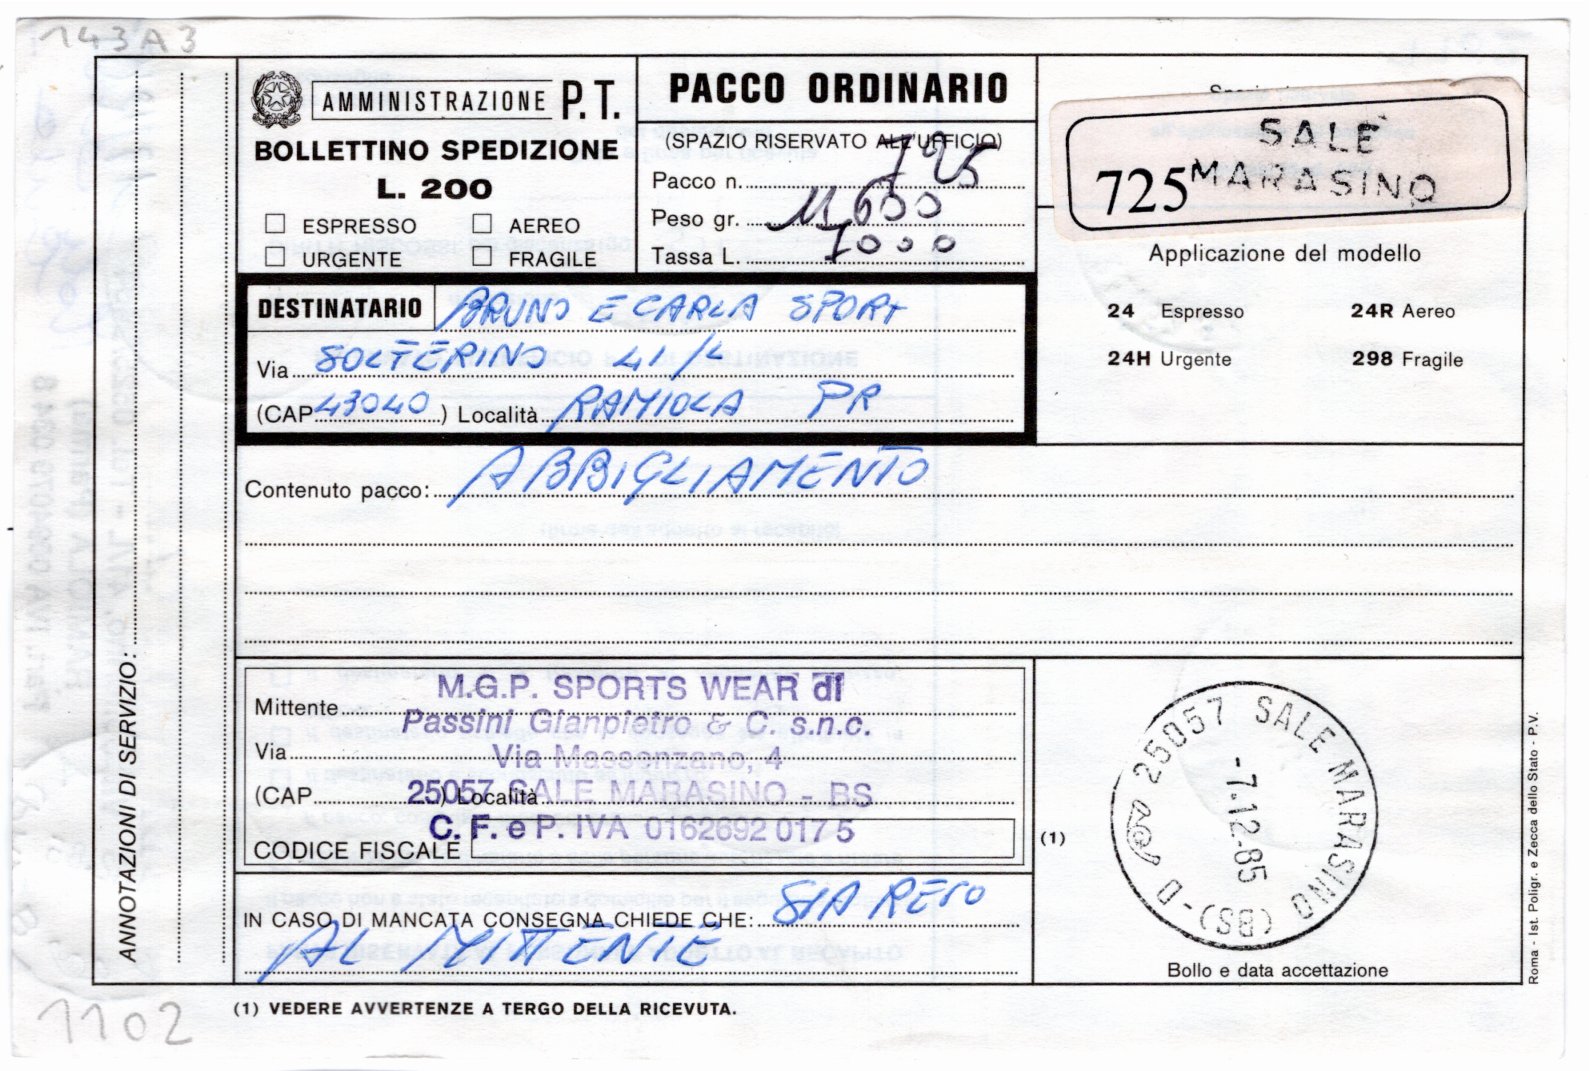 143A3
AMMINISTRAZIONE P.T.
BOLLETTINO SPEDIZIONE
L. 200
☐ ESPRESSO ☐ AEREO
☐ URGENTE ☐ FRAGILE
PACCO ORDINARIO
(SPAZIO RISERVATO ALL'UFFICIO)
Pacco n. 725
Peso gr. 11600
Tassa L. 7000
SALE
725 MARASINO
Applicazione del modello
24 Espresso 24R Aereo
24H Urgente 298 Fragile
DESTINATARIO BRUNO E CARLA SPORT
Via SOLFERINO 41/L
(CAP 43040) Località RAMIOLA PR
Contenuto pacco: ABBIGLIAMENTO
ANNOTAZIONI DI SERVIZIO:
Mittente M.G.P. SPORTS WEAR di
Passini Gianpietro & C. s.n.c.
Via Via Massenzano, 4
(CAP 25057) Località SALE MARASINO - BS
C. F. e P. IVA 0162692 017 5
CODICE FISCALE
IN CASO DI MANCATA CONSEGNA CHIEDE CHE: SIA RESO
AL MITTENTE
(1)
25057 SALE MARASINO D - (BS) - D
-7.12-85
Bollo e data accettazione
Roma - Ist. Poligr. e Zecca dello Stato - P.V.
(1) VEDERE AVVERTENZE A TERGO DELLA RICEVUTA.
1102